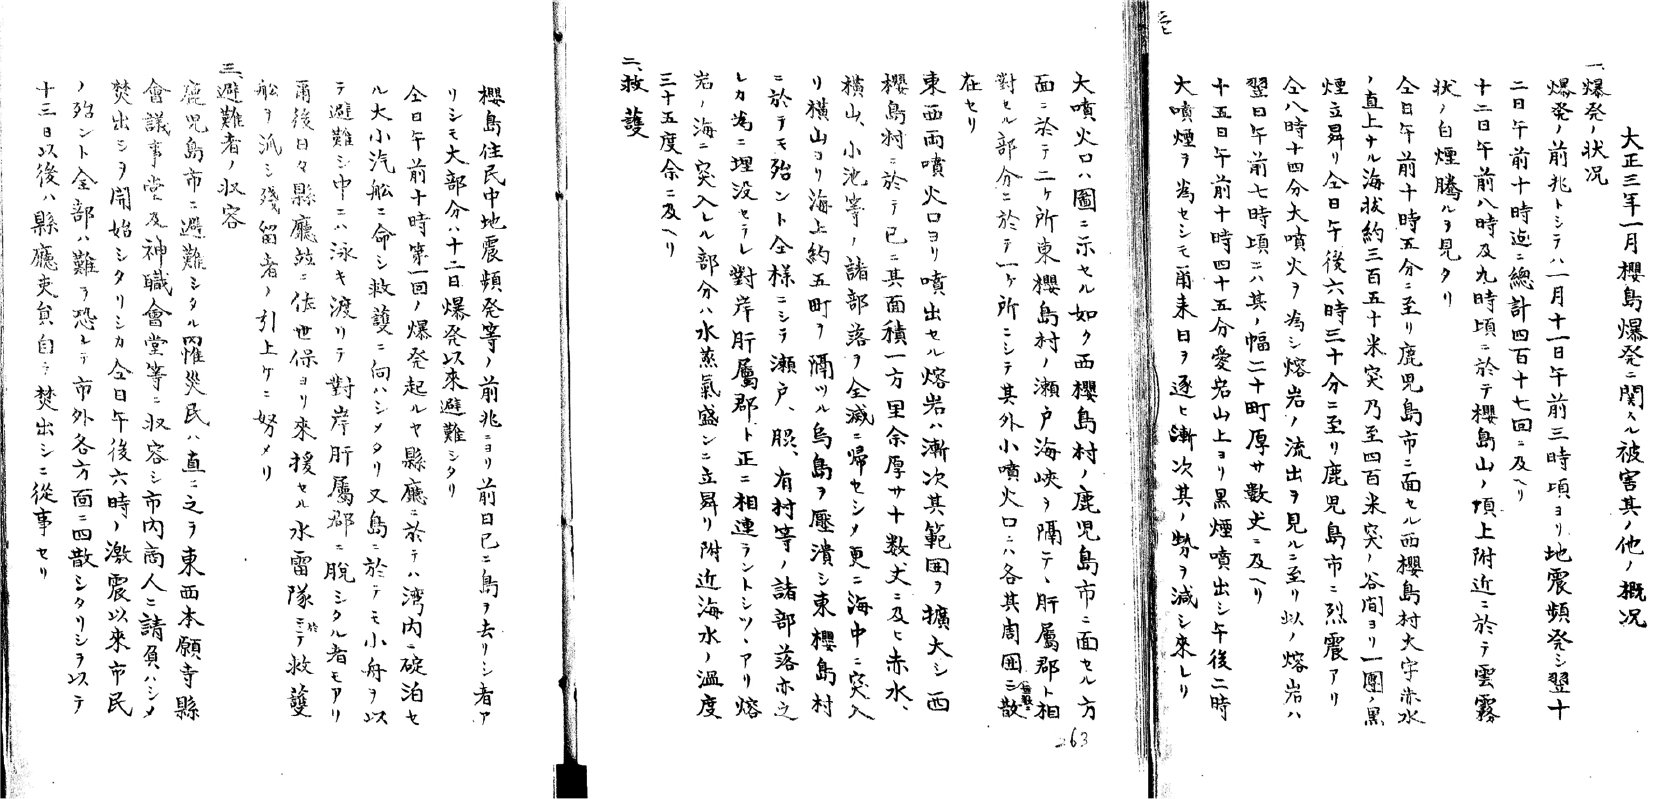 大正三年一月櫻島爆発ニ関スル被害其ノ他ノ概况
一、爆発ノ状况
爆発ノ前兆トシテハ一月十一日午前三時頃ヨリ地震頻発シ翌十
二日午前十時迠ニ總計四百十七回ニ及ヘリ
十二日午前八時及九時頃ニ於テ櫻島山ノ頂上附近ニ於テ雲霧
状ノ白煙騰ルヲ見タリ
仝日午前十時五分ニ至リ鹿児島市ニ面セル西櫻島村大字赤水
ノ直上ナル海抜約三百五十米突乃至四百米突ノ谷間ヨリ一團ノ黒
煙立昇リ仝日午後六時三十分ニ至リ鹿児島市ニ烈震アリ
仝八時十四分大噴火ヲ為シ熔岩ノ流出ヲ見ルニ至リ以ノ熔岩ハ
翌日午前七時頃ニハ其ノ幅二十町厚サ数丈ニ及ヘリ
十五日午前十時四十五分愛宕山上ヨリ黒煙噴出シ午後二時
大噴煙ヲ為セシモ爾来日ヲ逐ヒ漸次其ノ勢ヲ減シ來レリ
大噴火口ハ圖ニ示セル如ク西櫻島村ノ鹿児島市ニ面セル方
面ニ於テ二ケ所東櫻島村ノ瀬戸海峡ヲ隔テヽ肝属郡ト相
對セル部分ニ於テ一ケ所ニシテ其外小噴火口ハ各其周囲ニ散
在セリ
東西両噴火口ヨリ噴出セル熔岩ハ漸次其範囲ヲ擴大シ西
櫻島村ニ於テ已ニ其面積一方里余厚サ十数丈ニ及ヒ赤水、
横山、小池等ノ諸部落ヲ全滅ニ帰セシメ更ニ海中ニ突入
リ横山ヨリ海上約五町ヲ隔ツル烏島ヲ壓潰シ東櫻島村
ニ於テモ殆ント仝様ニシテ瀬戸、脇、有村等ノ諸部落亦之
レカ為ニ埋没セラレ對岸肝屬郡ト正ニ相連ラントシツヽアリ熔
岩ノ海ニ突入レル部分ハ水蒸氣盛ンニ立昇リ附近海水ノ温度
三十五度余ニ及ヘリ
二、救護
263
櫻島住民中地震頻発等ノ前兆ニヨリ前日已ニ島ヲ去リシ者ア
リシモ大部分ハ十二日爆発以來避難シタリ
仝日午前十時第一回ノ爆発起ルヤ縣廳ニ於テハ湾内ニ碇泊セ
ル大小汽舩ニ命シ救護ニ向ハシメタリ又島ニ於テモ小舟ヲ以
テ避難シ中ニハ泳キ渡リテ對岸肝屬郡ニ脱シタル者モアリ
爾後日々縣廳並ニ佐世保ヨリ來援セル水雷隊ニ於テ救護
舩ヲ派シ殘留者ノ引上ケニ努メリ
三、避難者ノ収容
鹿児島市ニ避難シタル罹災民ハ直ニ之ヲ東西本願寺縣
會議事堂及神職會堂等ニ収容シ市内商人ニ請負ハシメ
焚出シヲ開始シタリシカ仝日午後六時ノ激震以来市民
ノ殆ント全部ハ難ヲ恐レテ市外各方面ニ四散シタリシヲ以テ
十三日以後ハ縣廳吏員自ラ焚出シニ從事セリ